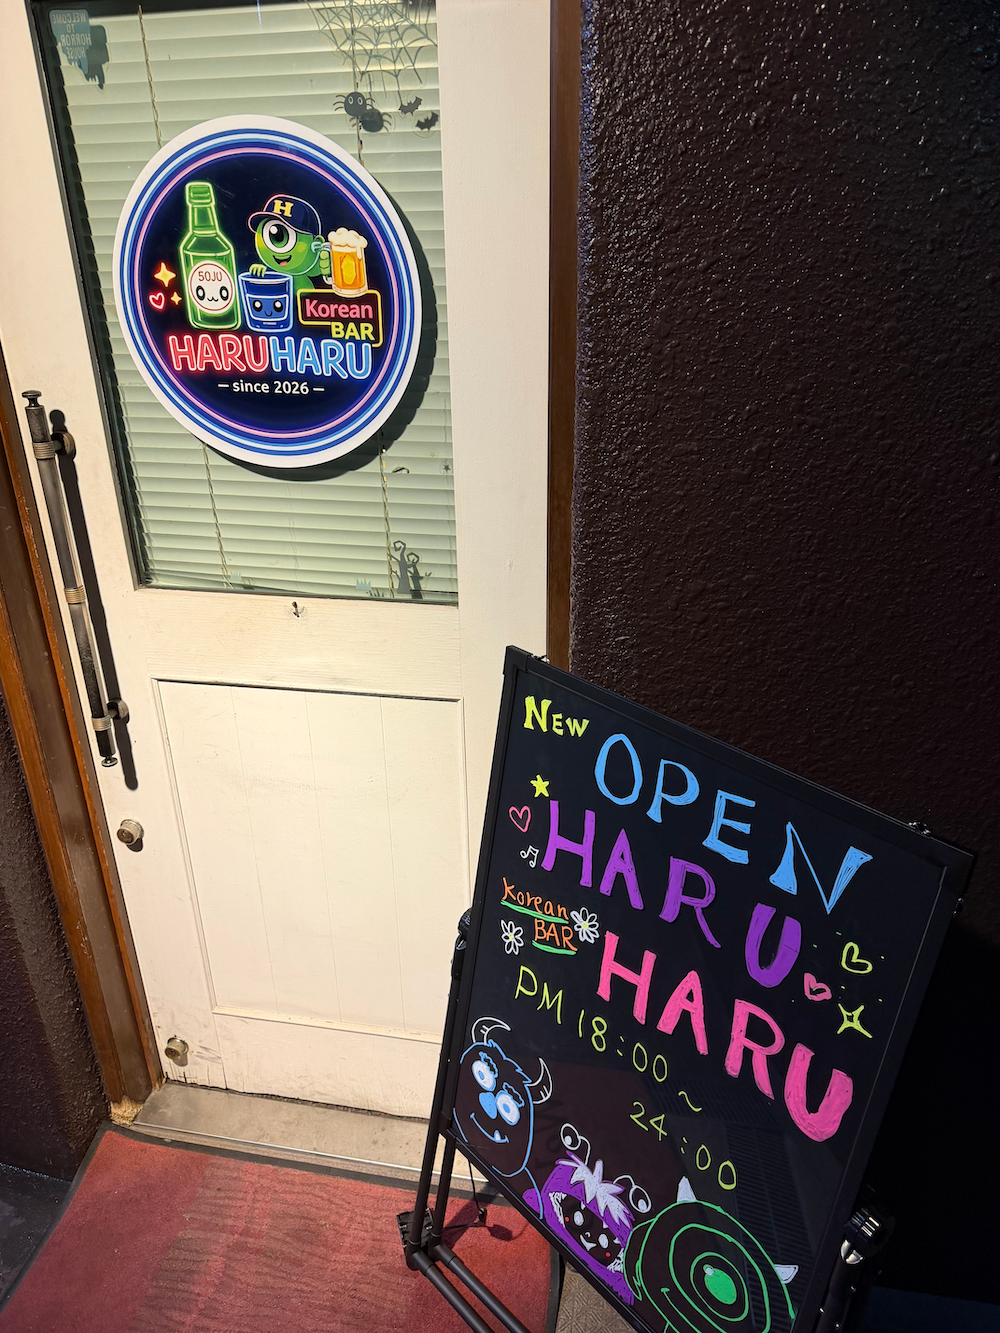 WELCOME
TO
HORROR
HOUSE
H
SOJU
Korean
BAR
HARUHARU
– since 2026 –
NEW
OPEN
HARU
Korean
BAR
HARU
PM 18:00
~
24:00